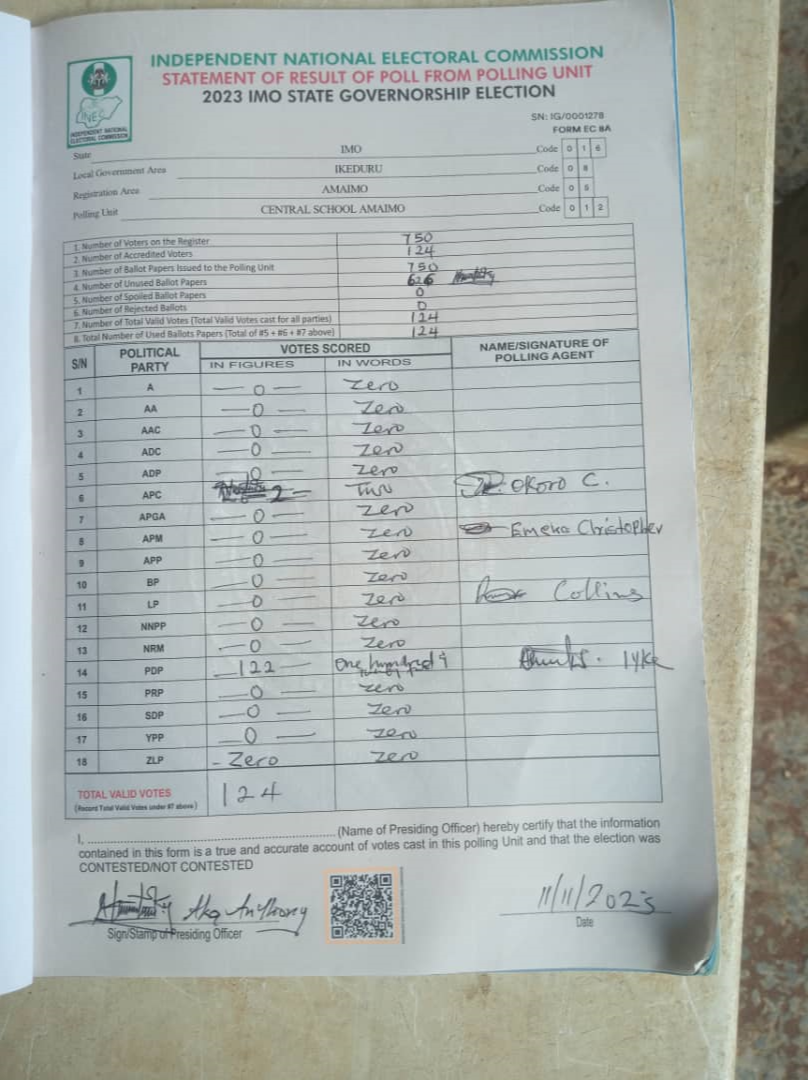 INDEPENDENT NATIONAL ELECTORAL COMMISSION
STATEMENT OF RESULT OF POLL FROM POLLING UNIT
2023 IMO STATE GOVERNORSHIP ELECTION
INEC
INDEPENDENT NATIONAL
ELECTORAL COMMISSION
SN: IG/0001278
FORM EC 8A
State IMO Code 0 1 6
Local Government Area IKEDURU Code 0 8
Registration Area AMAIMO Code 0 5
Polling Unit CENTRAL SCHOOL AMAIMO Code 0 1 2
1. Number of Voters on the Register 750
2. Number of Accredited Voters 124
3. Number of Ballot Papers Issued to the Polling Unit 750
4. Number of Unused Ballot Papers 626
5. Number of Spoiled Ballot Papers 0
6. Number of Rejected Ballots 0
7. Number of Total Valid Votes (Total Valid Votes cast for all parties) 124
8. Total Number of Used Ballots Papers (Total of #5 + #6 + #7 above) 124
S/N POLITICAL PARTY VOTES SCORED NAME/SIGNATURE OF POLLING AGENT
IN FIGURES IN WORDS
1 A — 0 — Zero
2 AA — 0 — Zero
3 AAC — 0 — Zero
4 ADC — 0 — Zero
5 ADP — 0 — Zero
6 APC 2 — Two OKORO C.
7 APGA — 0 — Zero
8 APM — 0 — Zero Emeka Christopher
9 APP — 0 — Zero
10 BP — 0 — Zero
11 LP — 0 — Zero Collins
12 NNPP — 0 — Zero
13 NRM — 0 — Zero
14 PDP — 122 — One hundred & Iyke
15 PRP — 0 — Zero
16 SDP — 0 — Zero
17 YPP — 0 — Zero
18 ZLP - Zero Zero
TOTAL VALID VOTES 124
(Record Total Valid Votes under #7 above)
I, (Name of Presiding Officer) hereby certify that the information
contained in this form is a true and accurate account of votes cast in this polling Unit and that the election was
CONTESTED/NOT CONTESTED
Anthony 11/11/2023
Sign/Stamp of Presiding Officer Date